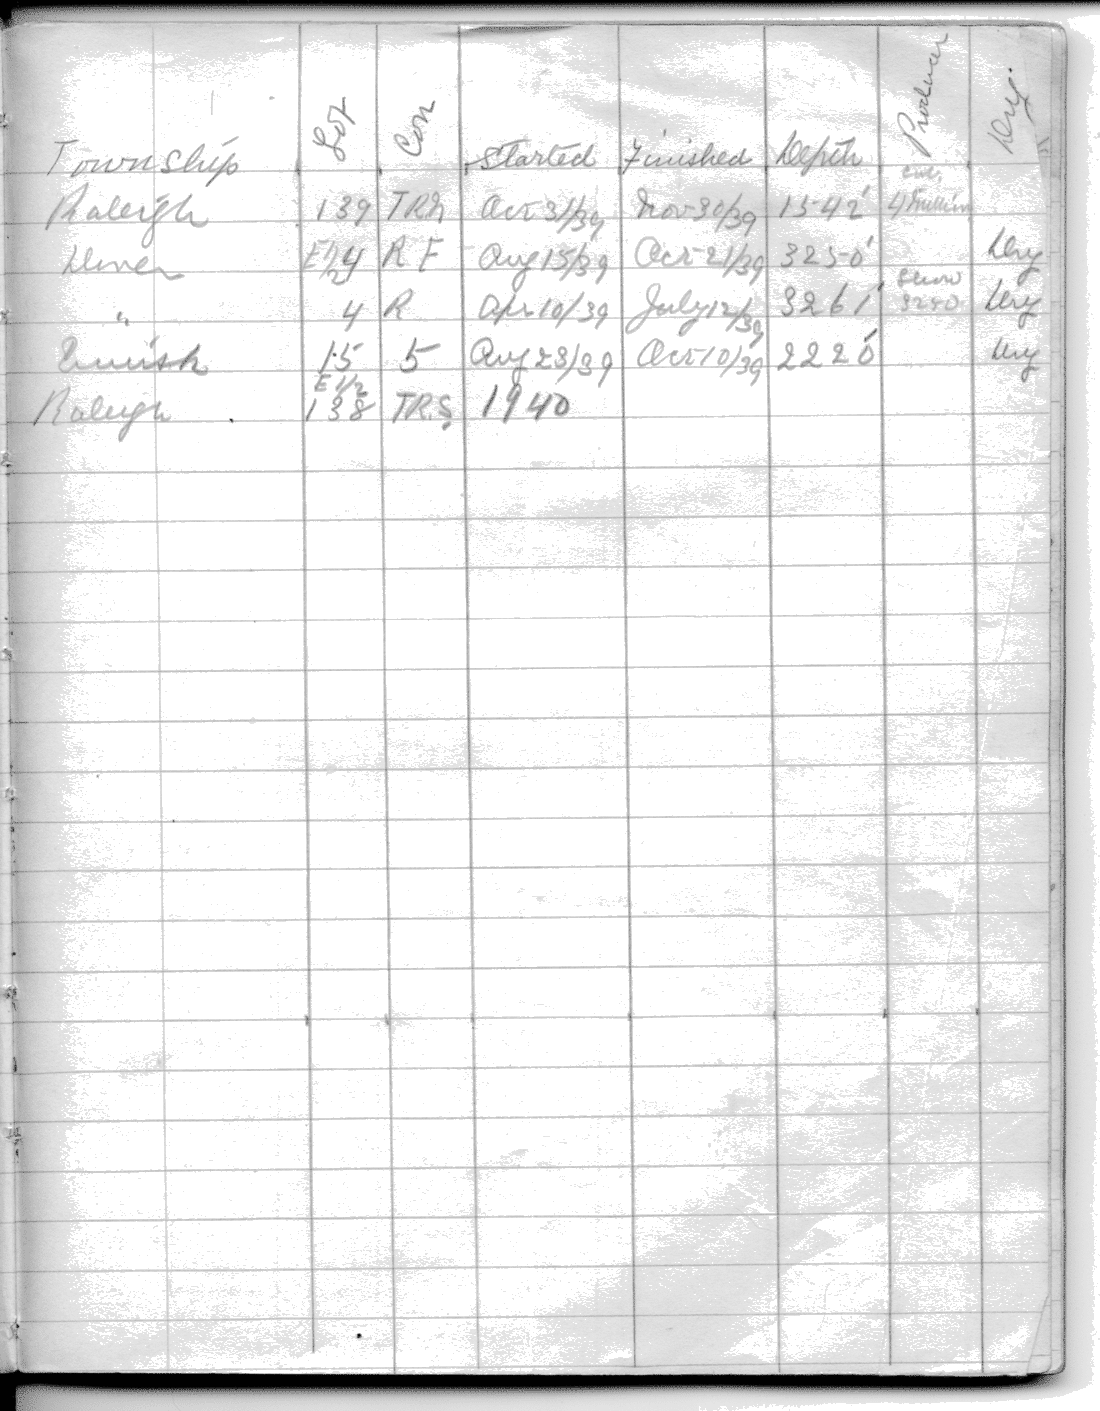 Township Lot Con Started Finished Depth Producer Dry.
Raleigh 139 TRN Oct 31/39 Nov 30/39 1542' 4 million
Dover E1/2 4 R F Aug 15/39 Oct 21/39 3250' Dry
" 4 R Apr 10/39 July 12/39 3261' Show 3250 Dry
15 5 Aug 23/39 Oct 10/39 2220' Dry
Raleigh E 1/2 138 TRS 1940